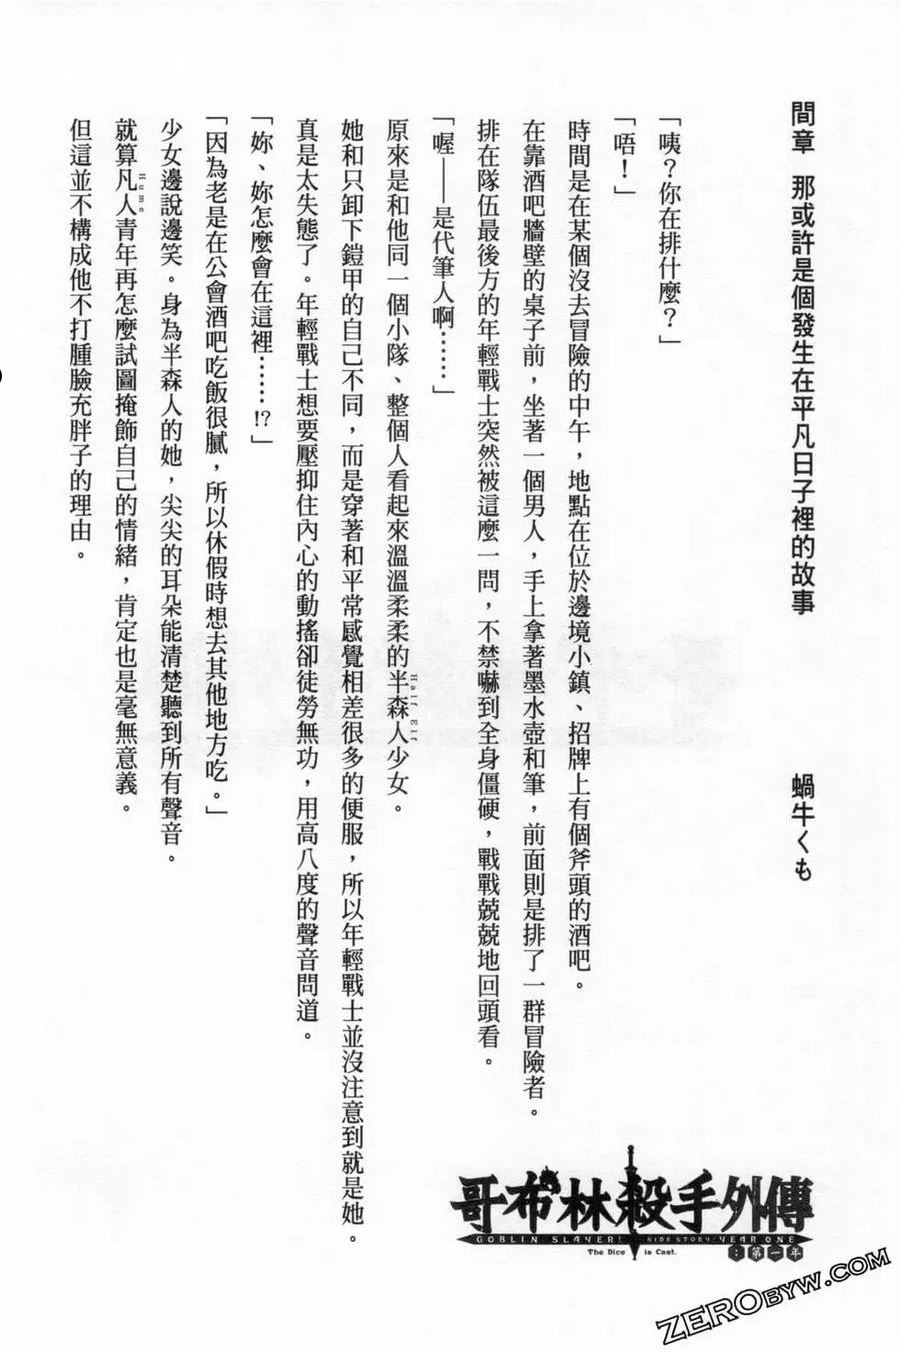 間章　那或許是個發生在平凡日子裡的故事　蝸牛くも
「咦？你在排什麼？」
「唔！」
時間是在某個沒去冒險的中午，地點在位於邊境小鎮、招牌上有個斧頭的酒吧。
在靠酒吧牆壁的桌子前，坐著一個男人，手上拿著墨水壺和筆，前面則是排了一群冒險者。
排在隊伍最後方的年輕戰士突然被這麼一問，不禁嚇到全身僵硬，戰戰兢兢地回頭看。
「喔——是代筆人啊……」
原來是和他同一個小隊、整個人看起來溫溫柔柔的半森人少女。
Half Elf
她和只卸下鎧甲的自己不同，而是穿著和平常感覺相差很多的便服，所以年輕戰士並沒注意到就是她。
真是太失態了。年輕戰士想要壓抑住內心的動搖卻徒勞無功，用高八度的聲音問道。
「妳、妳怎麼會在這裡……!?」
「因為老是在公會酒吧吃飯很膩，所以休假時想去其他地方吃。」
少女邊說邊笑。身為半森人的她，尖尖的耳朵能清楚聽到所有聲音。
就算凡人青年再怎麼試圖掩飾自己的情緒，肯定也是毫無意義。
Hume
但這並不構成他不打腫臉充胖子的理由。
哥布林殺手外傳
GOBLIN SLAYER! SIDE STORY: YEAR ONE
The Dice is Cast.
：第一年
ZEROBYW.COM